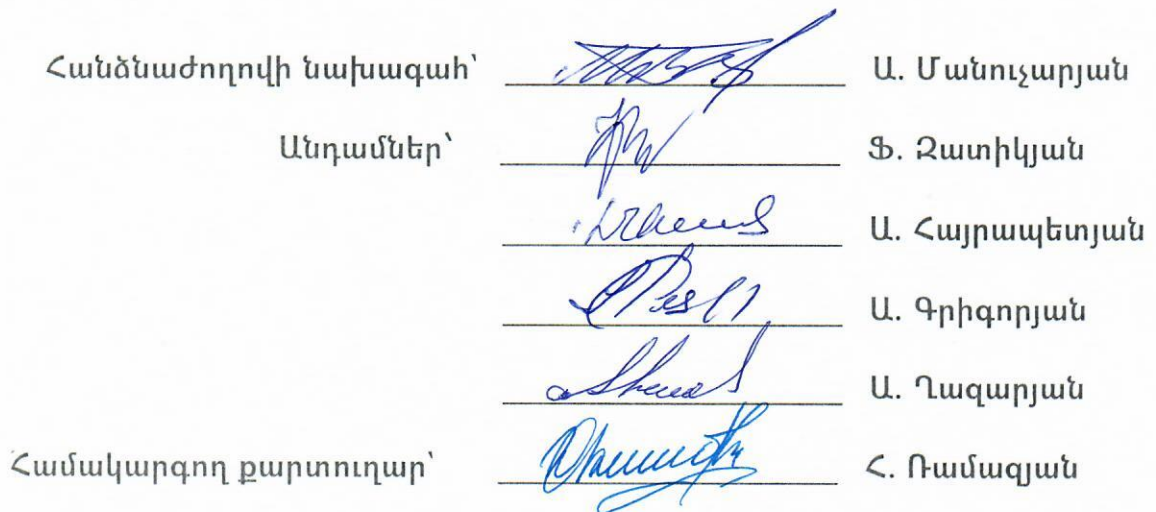 Հանձնաժողովի նախագահ՝ Ա. Մանուչարյան
Անդամներ՝ Ֆ. Զատիկյան
Ա. Հայրապետյան
Ա. Գրիգորյան
Ա. Ղազարյան
Համակարգող քարտուղար՝ Հ. Ռամազյան